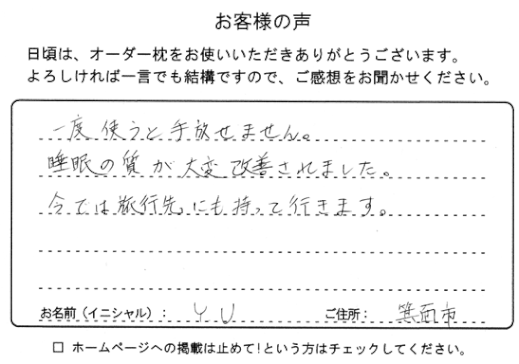 お客様の声
日頃は、オーダー枕をお使いいただきありがとうございます。
よろしければ一言でも結構ですので、ご感想をお聞かせください。
一度使うと手放せません。
睡眠の質が大変改善されました。
今では旅行先にも持って行きます。
お名前（イニシャル）： Y U ご住所： 箕面市
□ ホームページへの掲載は止めて!という方はチェックしてください。